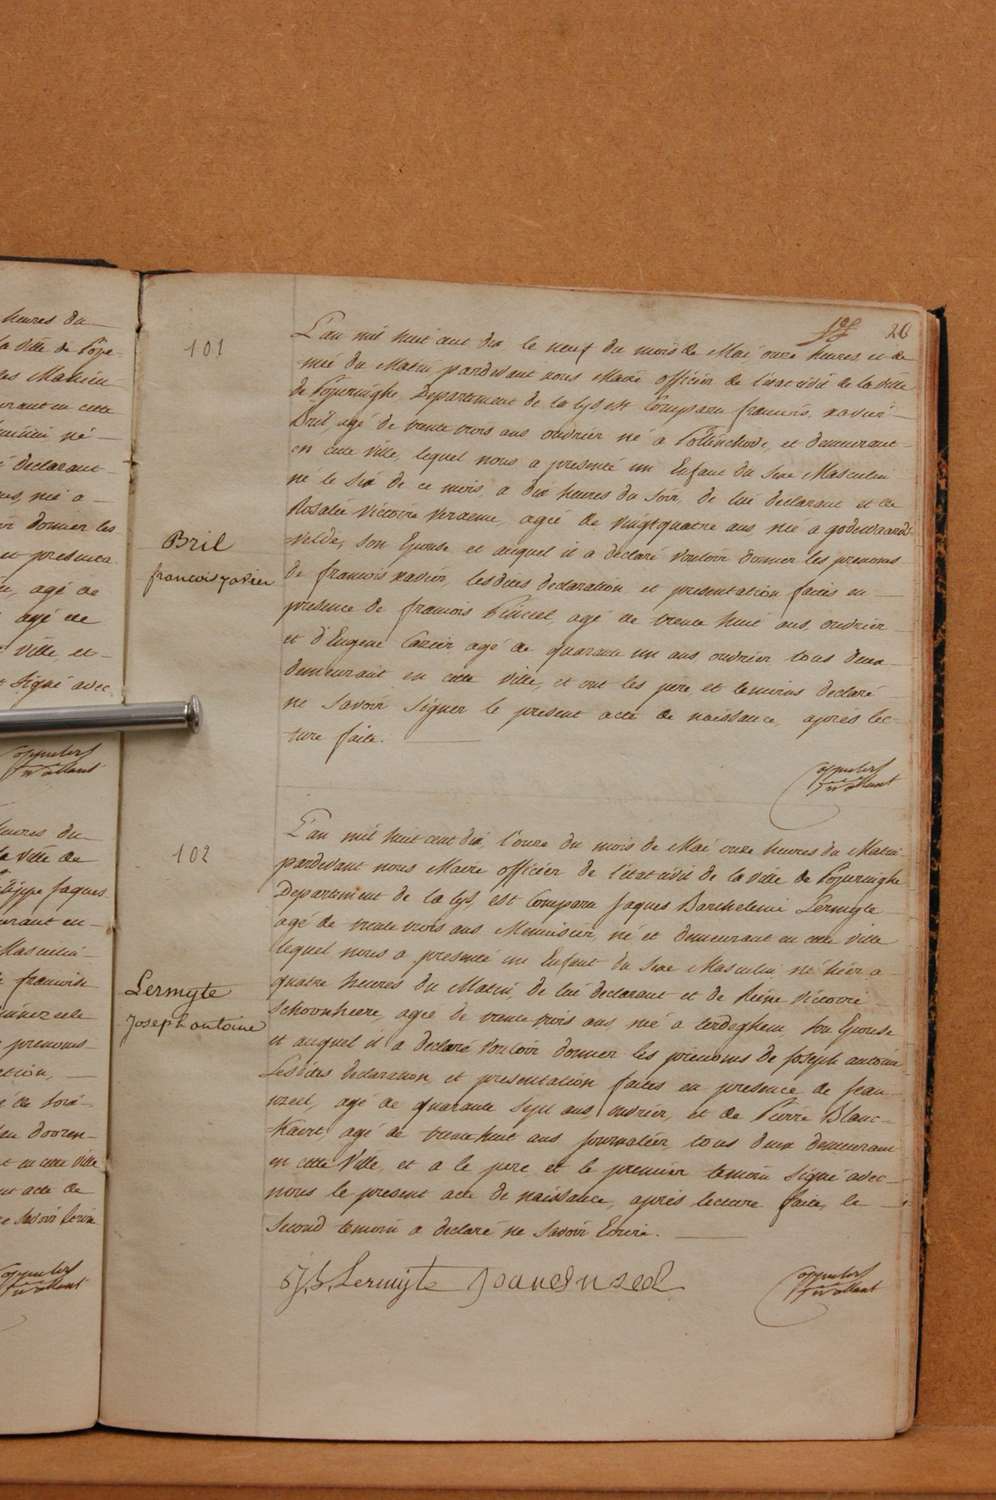 heures du
la Ville de Pope-
et presenta-
agé de
agé de
Ville, et
et signé avec
heures du
la Ville de
Jaques
Masculin
francoise
prenoms
en cette Ville
acte de
26
101
L'an mil huit cent dix le neuf du mois de Mai onze heures et de-
mie du Matin pardevant nous Maire officier de l'état civil de la ville
de Poperinghe Departement de la Lys est Comparu francois xavier
Bril agé de trente trois ans ouvrier né a Pollinchove, et demeurant
en cette ville, lequel nous a presenté un Enfant du Sexe Masculin
né le Six de ce mois, a dix heures du Soir, de lui declarant et de
Rosalie Victoire agée de vingtquatre ans, née a godewaards-
velde, son Epouse et auquel il a declaré vouloir donner les prenoms
Bril
francois xavier
de francois xavier, lesdites declaration et presentation faites en
presence de francois agé de trente huit ans, ouvrier
et d'Eugene Cazier agé de quarante un ans ouvrier tous deux
demeurant en cette Ville, et ont les pere et temoins declaré
ne savoir signer le present acte de naissance, après lec-
ture faite.
102
L'an mil huit cent dix, l'onze du mois de Mai onze heures du Matin
pardevant nous Maire officier de l'état civil de la Ville de Poperinghe
Departement de la Lys, est Comparu Jaques Barthelemi Lermyte
agé de trente trois ans Menuisier, né et demeurant en cette ville
lequel nous a presenté un Enfant du Sexe Masculin, né hier a
Lermyte
Joseph antoine
quatre heures du Matin, de lui declarant et de Reine Victoire
Schoonheere, agée de trente trois ans, née a terdeghem son Epouse
et auquel il a declaré vouloir donner les prenoms de Joseph antoine
Lesdites declaration, et presentation faites en presence de Jean
agé de quarante sept ans ouvrier, et de Pierre Blanc-
kaert agé de trente huit ans journalier, tous deux demeurant
en cette Ville, et a le pere, et le premier temoin signé avec
nous le present acte de naissance, après lecture faite, le
second temoin a declaré ne savoir Ecrire.
J. b. Lermijte